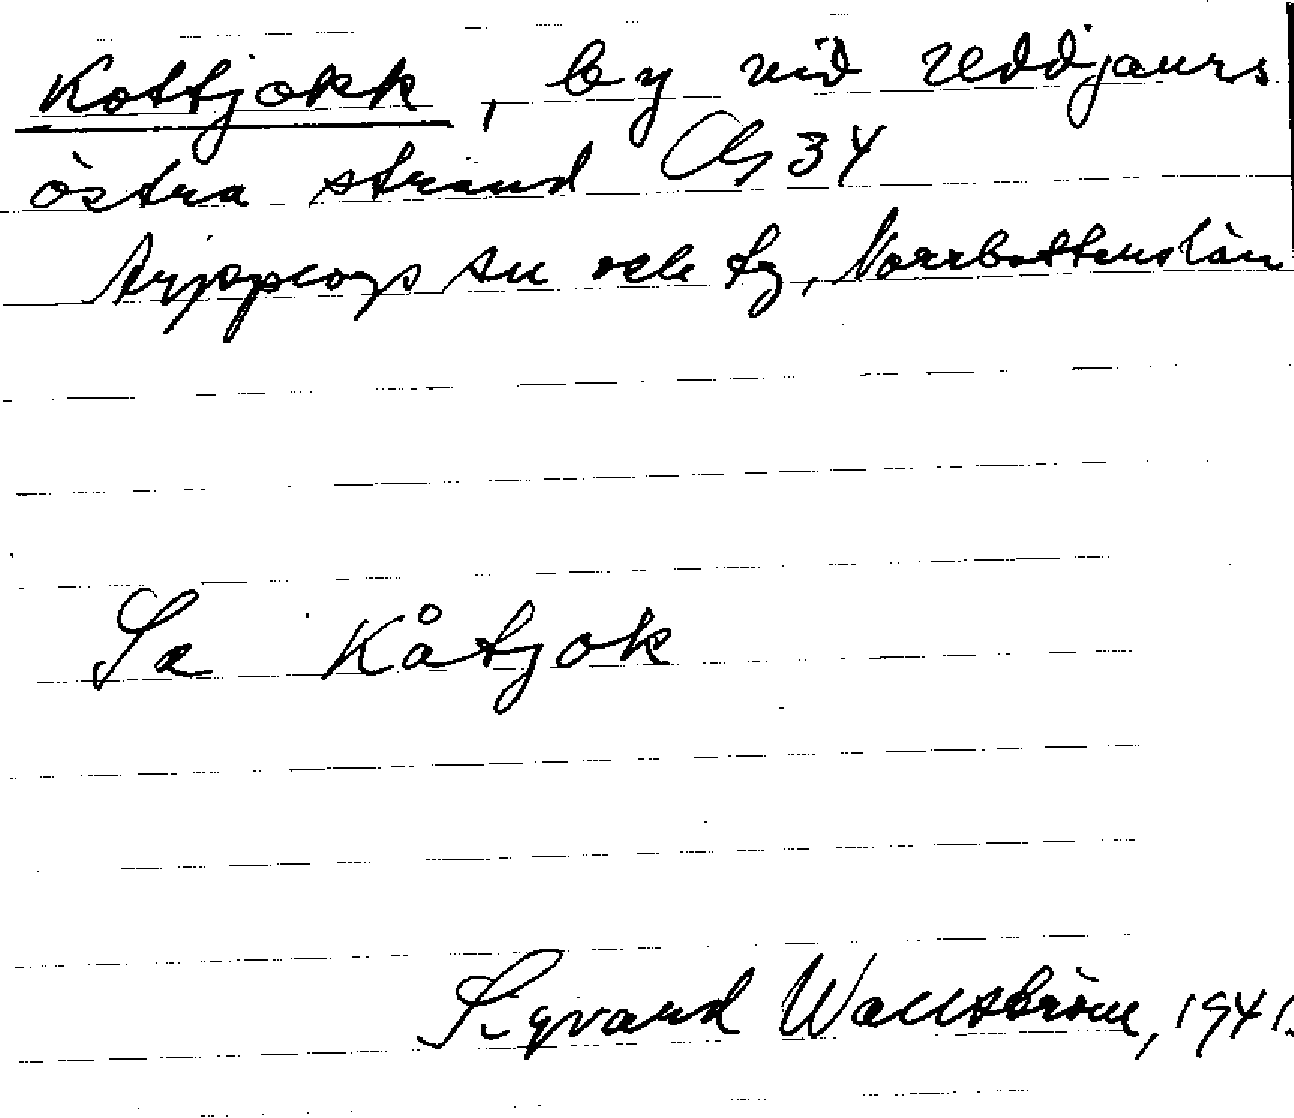 Kottjokk, by vid Uddjaurs
östra strand Gb 34
Arjeplogs sn och tg, Norrbottenslän
Sa Kåtjok
Sigvard Wallström, 1941.